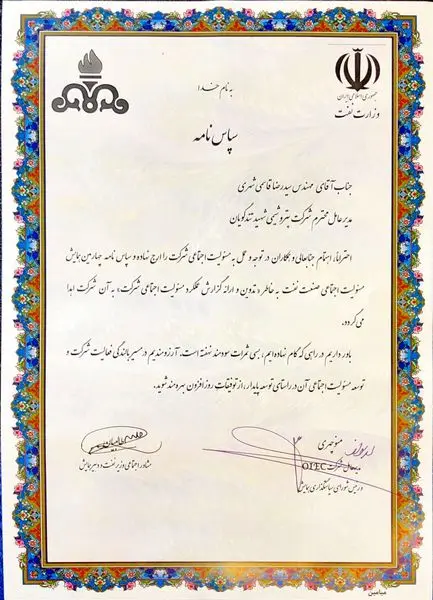 به نام خدا
جمهوری اسلامی ایران
وزارت نفت
سپاس نامه
جناب آقای مهندس سیدرضا قاسمی شهری
مدیرعامل محترم شرکت پتروشیمی شهید تندگویان
احتراماً، اهتمام جنابعالی و همکاران در توجه و عمل به مسئولیت اجتماعی شرکت را ارج نهاده و سپاس نامه چهارمین همایش
مسئولیت اجتماعی صنعت نفت به خاطر «تدوین و ارائه گزارش عملکرد مسئولیت اجتماعی شرکت» به آن شرکت اهدا
می گردد.
باور داریم در راهی که گام نهاده ایم، بسی ثمرات سودمند نهفته است. آرزومندیم در مسیر بالندگی فعالیت شرکت و
توسعه مسئولیت اجتماعی آن در راستای توسعه پایدار، از توفیقات روزافزون بهره مند شوید.
منوچهری
مدیرعامل شرکت OTEC
و رئیس شورای سیاستگذاری همایش
مشاور اجتماعی وزیر نفت و دبیر همایش
میامین